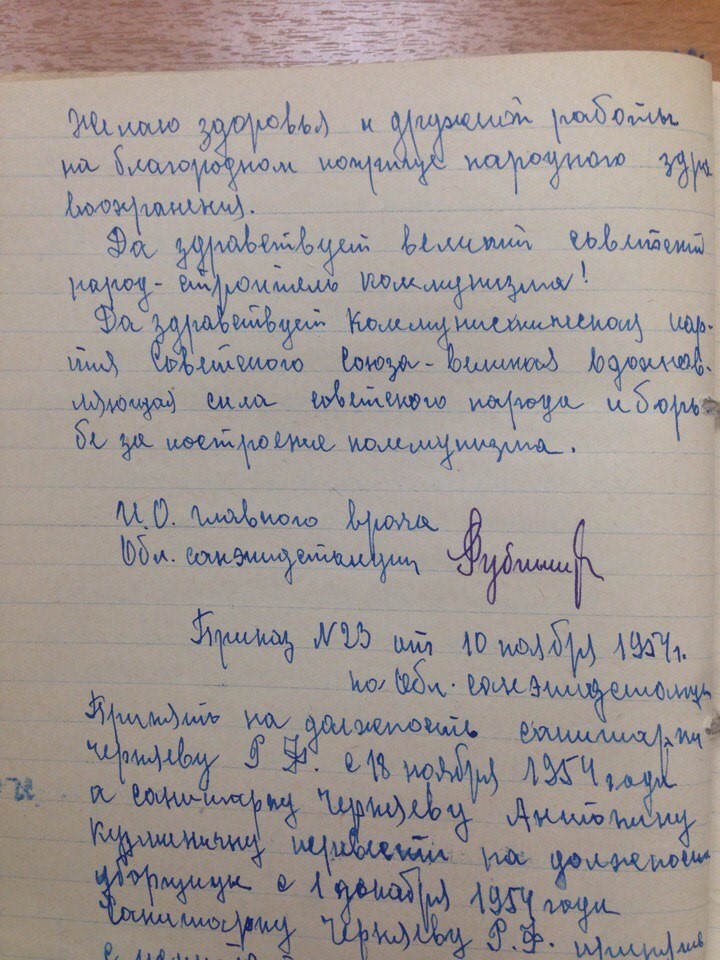 Желаю здоровья и дружной работы
на благородном поприще народного здра
воохранения.
Да здравствует великий советский
народ - строитель коммунизма!
Да здравствует Коммунистическая пар-
тия Советского Союза - великая вдохнов-
ляющая сила советского народа в борь
бе за построение коммунизма.
И.О. главного врача
Обл. санэпидстанции
Приказ N 23 от 10 ноября 1954 г.
по Обл. санэпидстанции
Принять на должность санитарки
Черняеву Р. Ф. с 18 ноября 1954 года
а санитарку Черняеву Антонину
Кузминичну перевести на должность
уборщицы с 1 декабря 1954 года
Санитарку Черняеву Р. Ф.